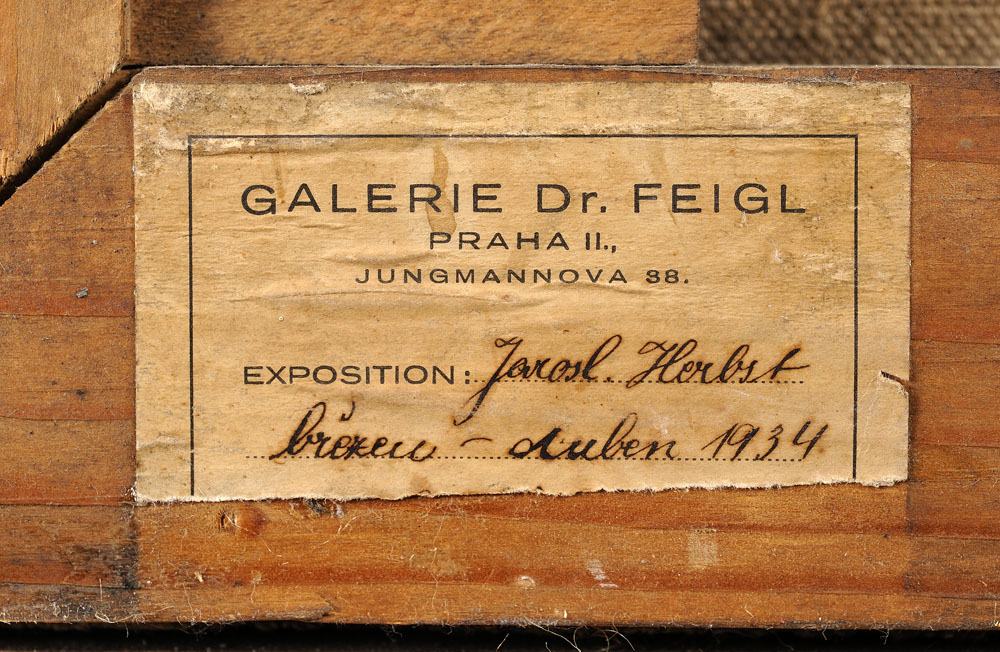 GALERIE Dr. FEIGL
PRAHA II.,
JUNGMANNOVA 38.
EXPOSITION: Jarosl. Herbst
březen – duben 1934